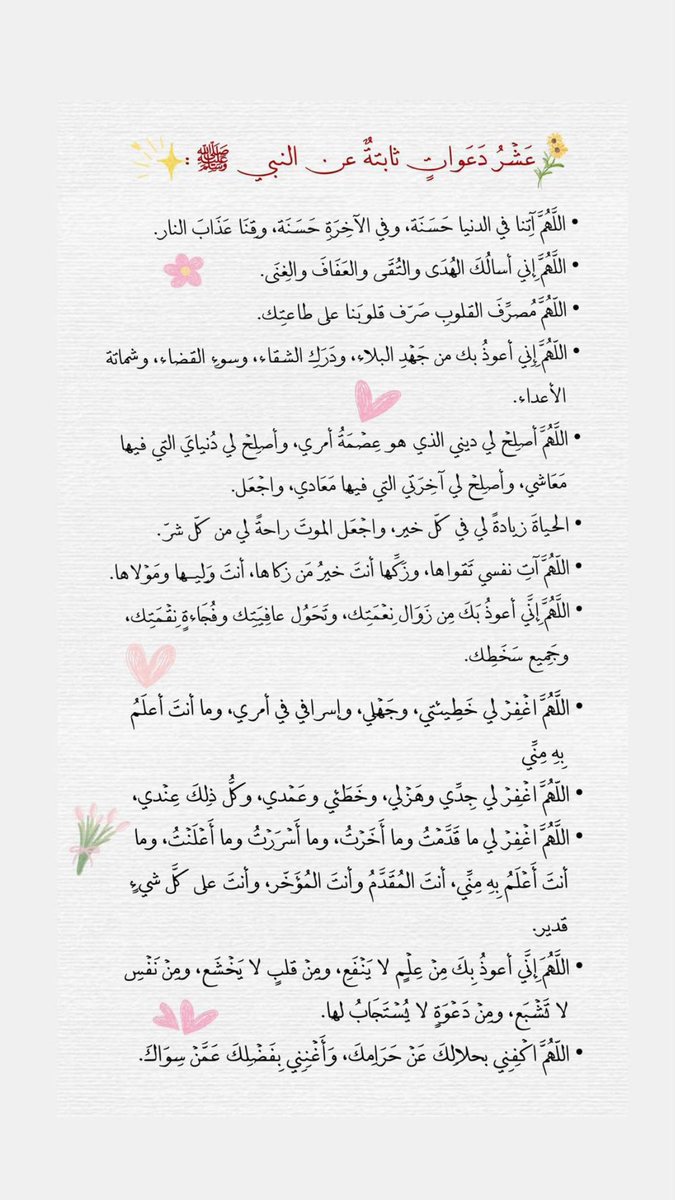 عَشْرُ دَعَواتٍ ثابتةٌ عن النبي ﷺ :
• اللَّهُمَّ آتِنا في الدنيا حَسَنَة، وفي الآخِرَةِ حَسَنَة، وقِنَا عَذَابَ النار.
• اللَّهُمَّ إني أسالُكَ الهُدَى والتُقَى والعَفَافَ والغِنَى.
• اللّهُمَّ مُصرِّفَ القلوبِ صَرّف قلوبَنا على طاعتِك.
• اللَّهُمَّ إِنِي أعوذُ بك من جَهْدِ البلاءِ، ودَرَكِ الشقاء، وسوءِ القضاء، وشماتة
الأعداء.
• اللَّهُمَّ أصلِحْ لي ديني الذي هو عِصْمَةُ أمري، وأصلِحْ لي دُنيايَ التي فيها
مَعَاشي، وأصلِحْ لي آخِرَتي التي فيها مَعَادي، واجْعَل.
• الحياةَ زيادةً لي في كلّ خير، واجْعَل الموتَ راحةً لي من كلّ شرّ.
• اللّهُمَّ آتِ نفسي تَقواها، وزَكِّها أنتَ خيرُ مَن زكاها، أنتَ وَليها ومَوْلاها.
• اللَّهُمَّ إِنَّي أعوذُ بَكَ مِن زَوَال نِعْمَتِك، وتَحَوُل عافِيَتِك وفُجَاءةٍ نِقْمَتِك،
وجَمِيع سَخَطِك.
• اللَّهُمَّ اغْفِرْ لي خَطِيئتي، وجَهْلي، وإسرافي في أمري، وما أنتَ أعلَمُ
بِهِ مِنِّي
• اللَّهُمَّ اغْفِرْ لي جِدِّي وهَزْلي، وخَطَئي وعَمْدي، وكلُّ ذلِكَ عِنْدي،
• اللَّهُمَّ اغْفِرْ لي ما قَدَّمْتُ وما أَخَرْتُ، وما أَسْرَرْتُ وما أَعْلَنْتُ، وما
أنتَ أَعْلَمُ بِهِ مِنِّي، أنتَ المُقَدَّمُ وأنتَ المُؤَخَّر، وأنتَ على كلَّ شيءٍ
قدير.
• اللَّهُمَ إِنَّي أعوذُ بِكَ مِنْ عِلْمٍ لا يَنْفَعِ، ومِنْ قلبٍ لا يَخْشَع، ومِنْ نَفْسِ
لا تَشْبَع، ومِنْ دَعْوَةٍ لا يُسْتَجَابُ لها.
• اللّهُمَّ اكْفِنِي بحلالِكَ عَنْ حَرَامِكَ، وَأَغْنِنِي بِفَضْلِكَ عَمَّنْ سِوَاكَ.